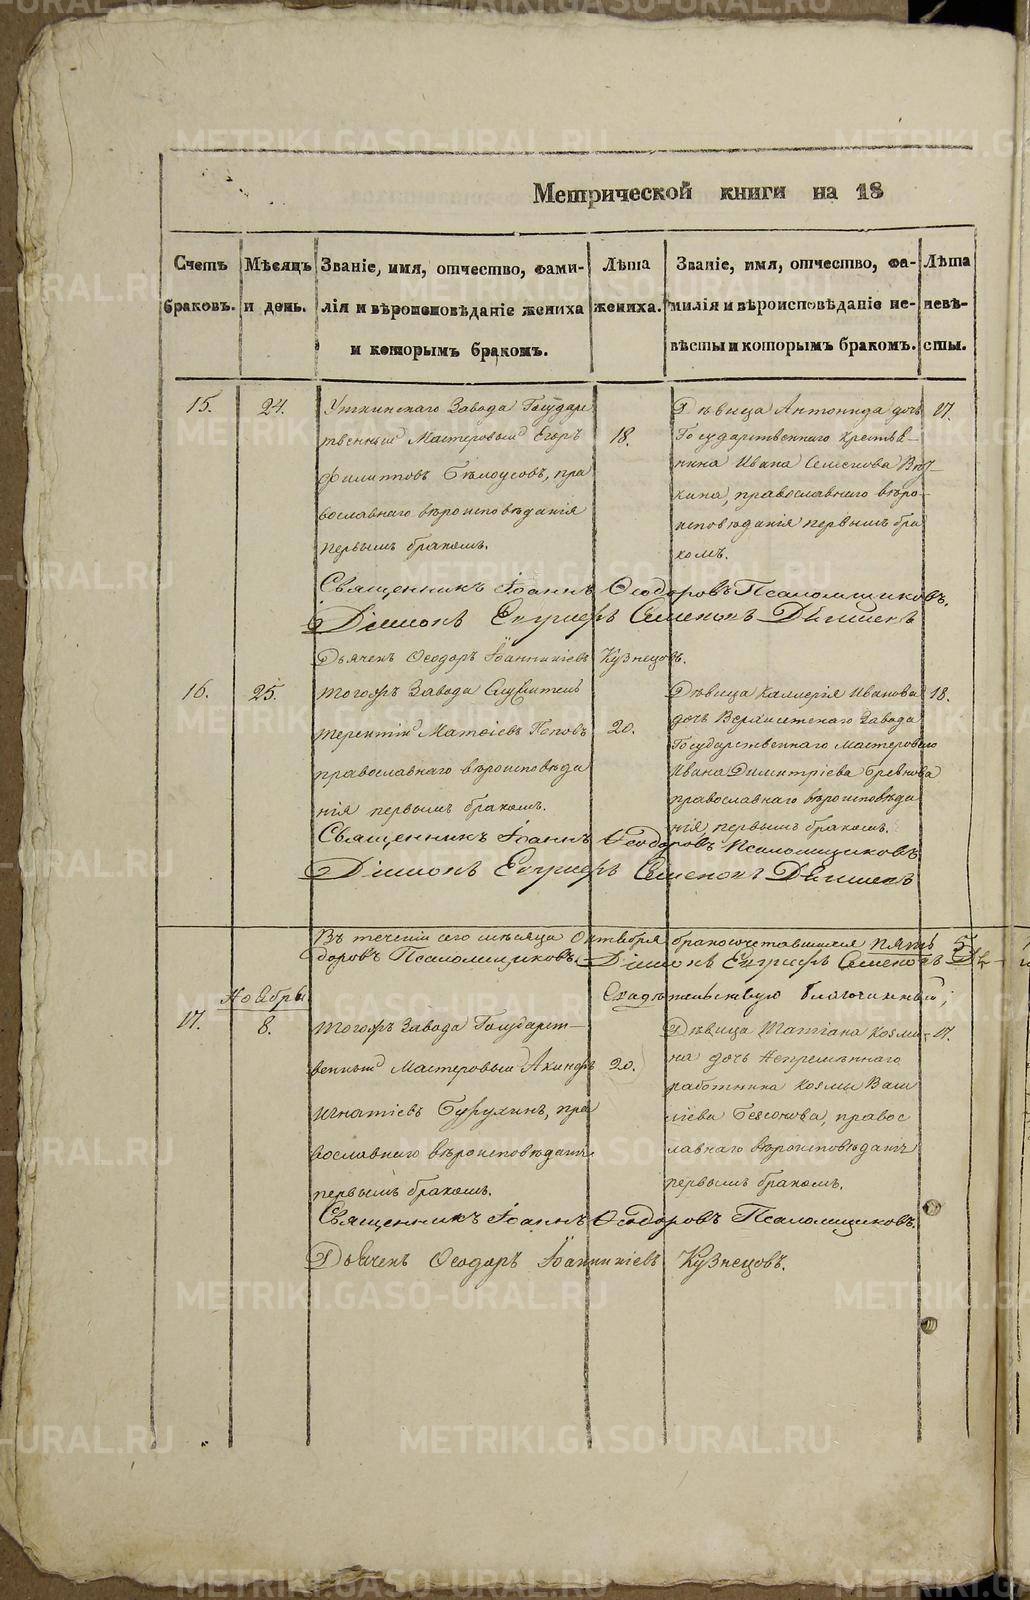 Метрической книги на 18
Счетъ браковъ.
Мѣсяцъ и день.
Званіе, имя, отчество, фами-
лія и вѣроисповѣданіе жениха
и которымъ бракомъ.
Лѣта жениха.
Званіе, имя, отчество, фа-
милія и вѣроисповѣданіе не-
вѣсты и которымъ бракомъ.
Лѣта невѣ-
сты.
15.
24.
Уткинскаго Завода Государс
твенный Мастеровый Егоръ
Филипповъ Бѣлоусовъ, пра
вославнаго вѣроисповѣданія
первымъ бракомъ.
18.
Дѣвица Антонида дочь
Государственнаго крестья-
нина Ивана Семенова
православнаго вѣро-
исповѣданія первымъ бра
комъ.
17.
Священникъ Іоаннъ Ѳеодоровъ Псаломщиковъ.
Діаконъ Семеновъ
Дьячекъ Ѳеодоръ Іоанникіевъ Кузнецовъ.
16.
25.
Тогожъ Завода Служитель
Терентій Матѳіевъ Поповъ
православнаго вѣроисповѣда
нія первымъ бракомъ.
20.
Дѣвица Каллерія Иванова
дочь Верхисетскаго Завода
Государственнаго мастероваго
Ивана Димитріева Бревнова
православнаго вѣроисповѣда
нія первымъ бракомъ.
18.
Священникъ Іоаннъ Ѳеодоровъ Псаломщиковъ
Діаконъ Семеновъ
Въ теченіи сего мѣсяца Октября бракосочетавшихся пять 5
доровъ Псаломщиковъ. Діаконъ Семеновъ
Ноябрь
17.
8.
Тогожъ Завода Государст-
венный Мастеровый Акинфъ
Игнатіевъ пра
вославнаго вѣроисповѣдані
первымъ бракомъ.
20.
Свидѣтельствую благочинный;
Дѣвица Татіана Козми-
на дочь Непремѣннаго
работника Козмы Васи
ліева правос
лавнаго вѣроисповѣдані
первымъ бракомъ.
17.
Священникъ Іоаннъ Ѳеодоровъ Псаломщиковъ.
Дьячекъ Ѳеодоръ Іоанникіевъ Кузнецовъ.
METRIKI.GASO-URAL.RU